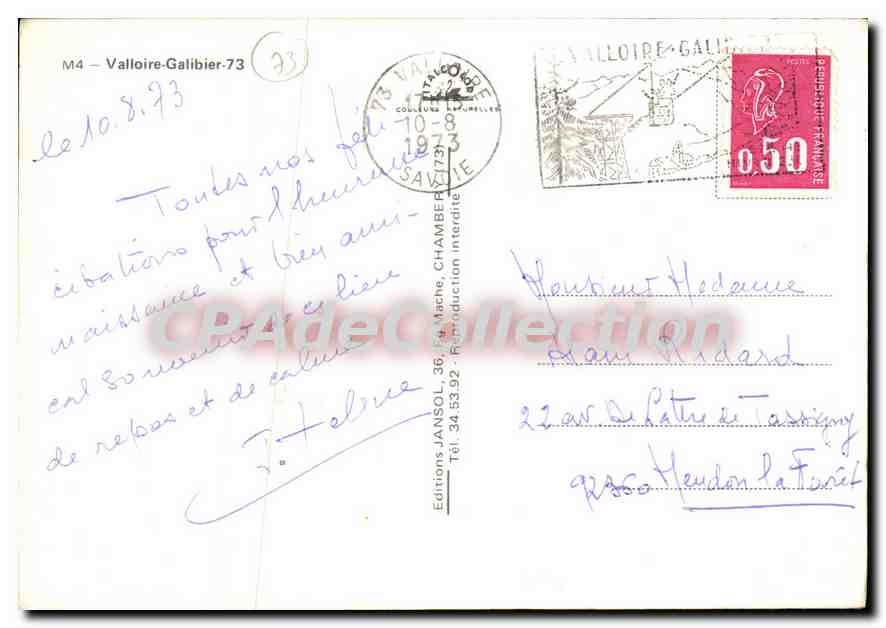 M4 – Valloire-Galibier-73
73
le 10.8.73
Toutes nos féli-
citations pour l'heureuse
naissance et bien ami-
cal souvenir de ce lieu
de repos et de calme
73 VALLOIRE
10-8
1973
SAVOIE
ITALCOLOR
COULEURS NATURELLES
VALLOIRE-GALIB
POSTES
REPUBLIQUE FRANÇAISE
0,50
Editions JANSOL, 36, Fg Mache, CHAMBERY (73)
Tél. 34.53.92 - Reproduction interdite
CPAdeCollection
Monsieur Madame
Ridard
22 av. De Lattre de Tassigny
92360 Meudon la Forêt